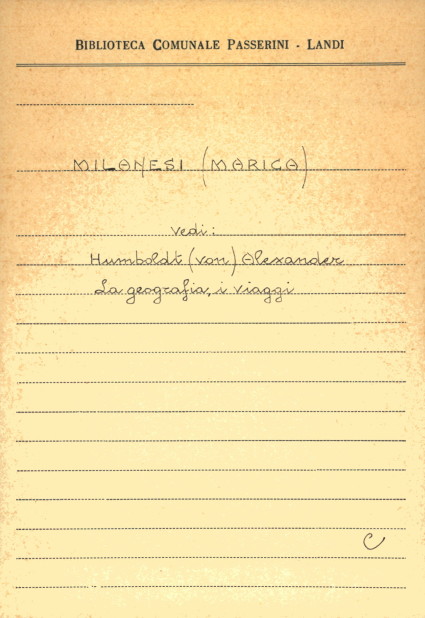 BIBLIOTECA COMUNALE PASSERINI - LANDI
MILANESI (MARICA)
Vedi:
Humboldt (von) Alexander
La geografia, i viaggi
C